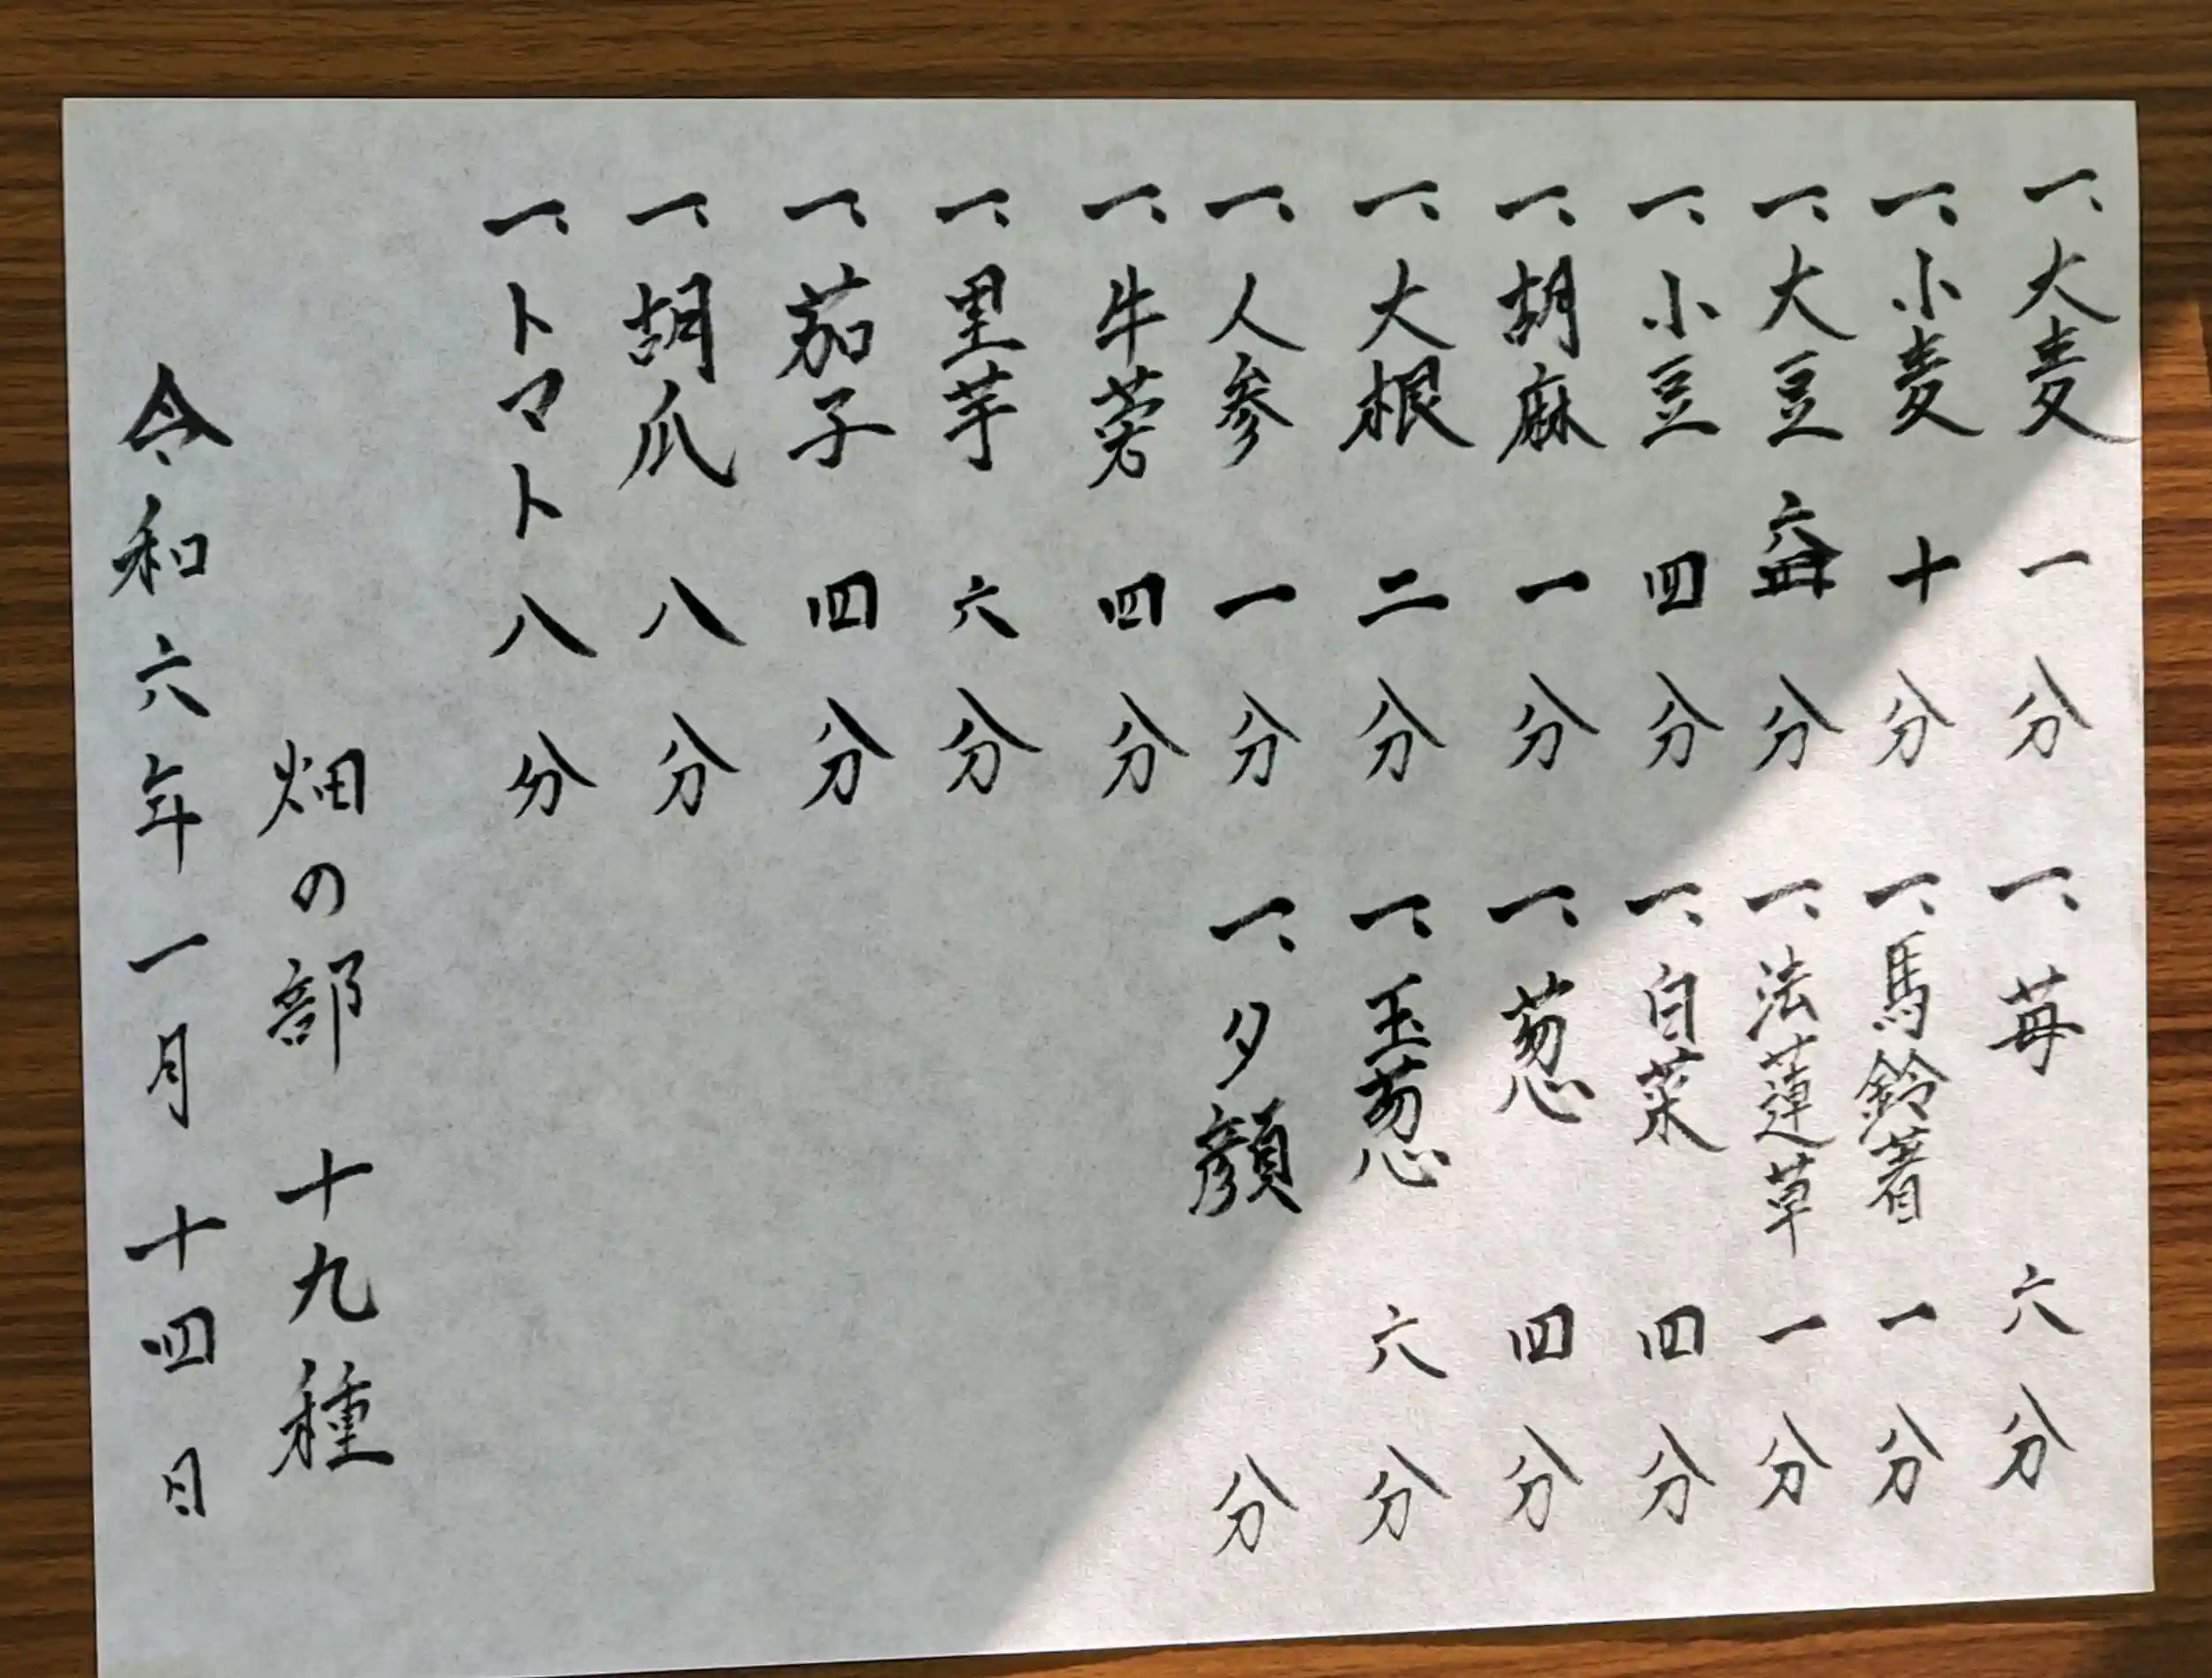 一、大麦 一分
一、小麦 十分
一、大豆 六分
一、小豆 四分
一、胡麻 一分
一、大根 二分
一、人参 一分
一、牛蒡 四分
一、里芋 六分
一、茄子 四分
一、胡瓜 八分
一、トマト 八分
一、苺 六分
一、馬鈴著 一分
一、法蓮草 一分
一、白菜 四分
一、葱 四分
一、玉葱 六分
一、夕顔 分
畑の部 十九種
令和六年一月十四日